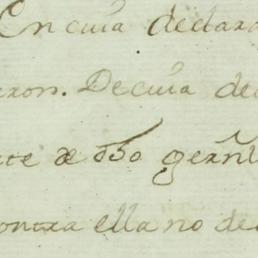 En cuia declara
ron. De cuia de
te de
contra ella no de